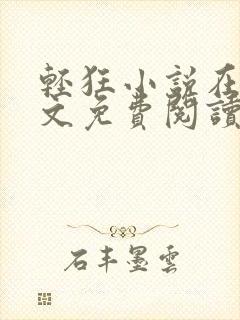 輕狂小說在
文免費閱讀
石丰墨雲